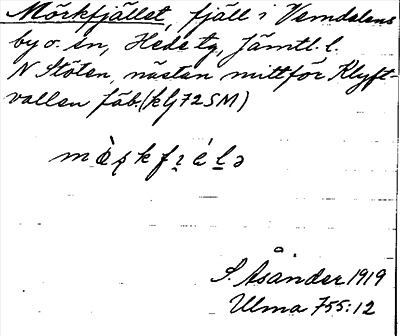 Mörkfjället, fjäll i Vemdalens
by o. sn, Hede tg, Jämtl. l.
N Stöten, nästan mittför Klyft-
vallen fäb. (kbl 72SM)
S. Åsander 1919
Ulma 755:12